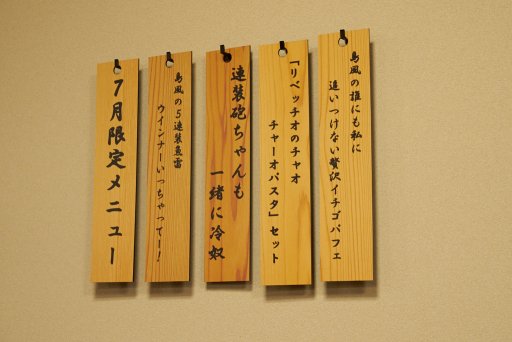 7月限定メニュー
島風の5連装魚雷
ウインナーいっちゃってー!
連装砲ちゃんも
一緒に冷奴
「リベッチオのチャオ
チャーオパスタ」セット
島風の誰にも私に
追いつけない贅沢イチゴパフェ